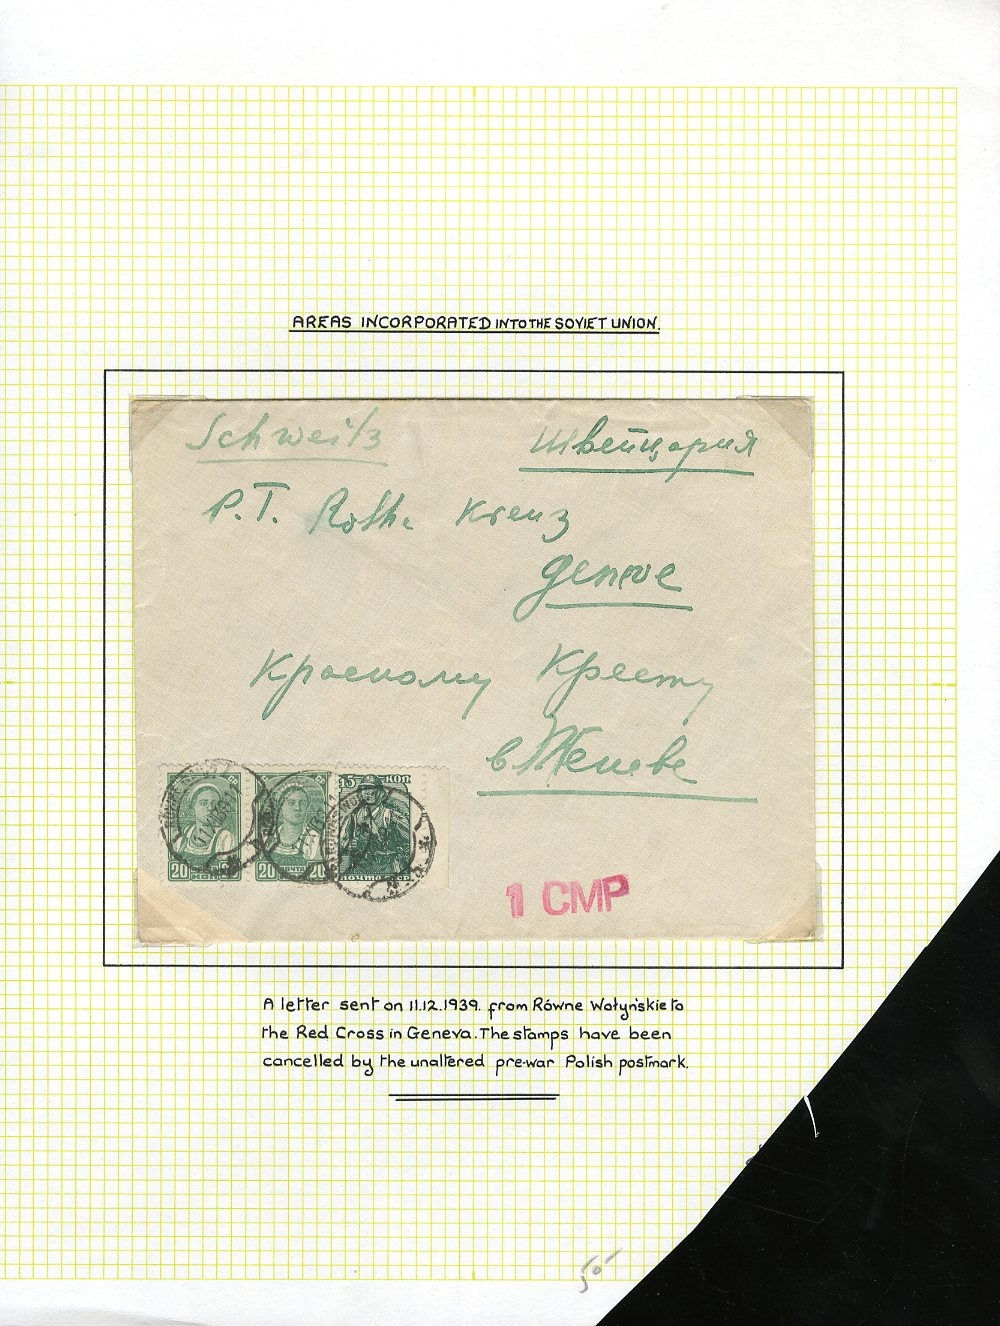 AREAS INCORPORATED INTO THE SOVIET UNION.
Schweilz Швейцария
P.T. Rothe Kreuz
Geneve
Красному Кресту
в Женеве
15 КОП
20 20 20
ПОЧТА
1 CMP
A letter sent on 11.12.1939. from Równe Wołyńskie to
the Red Cross in Geneva. The stamps have been
cancelled by the unaltered pre-war Polish postmark.
50